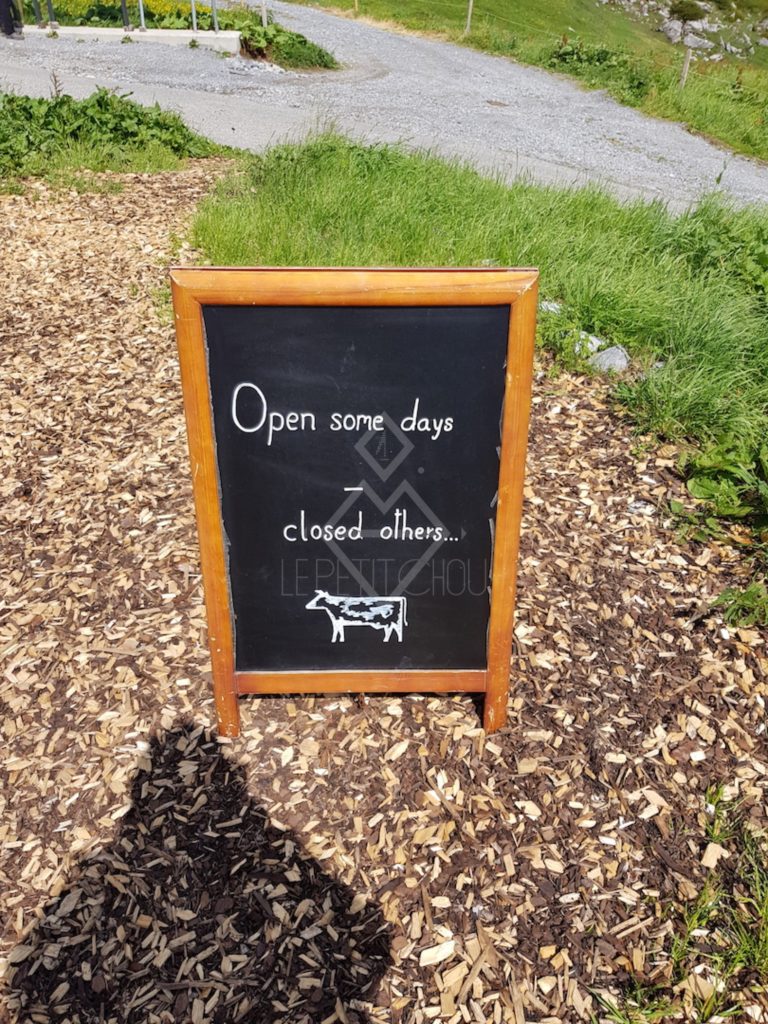 Open some days
–
closed others...
LE PETIT CHOU